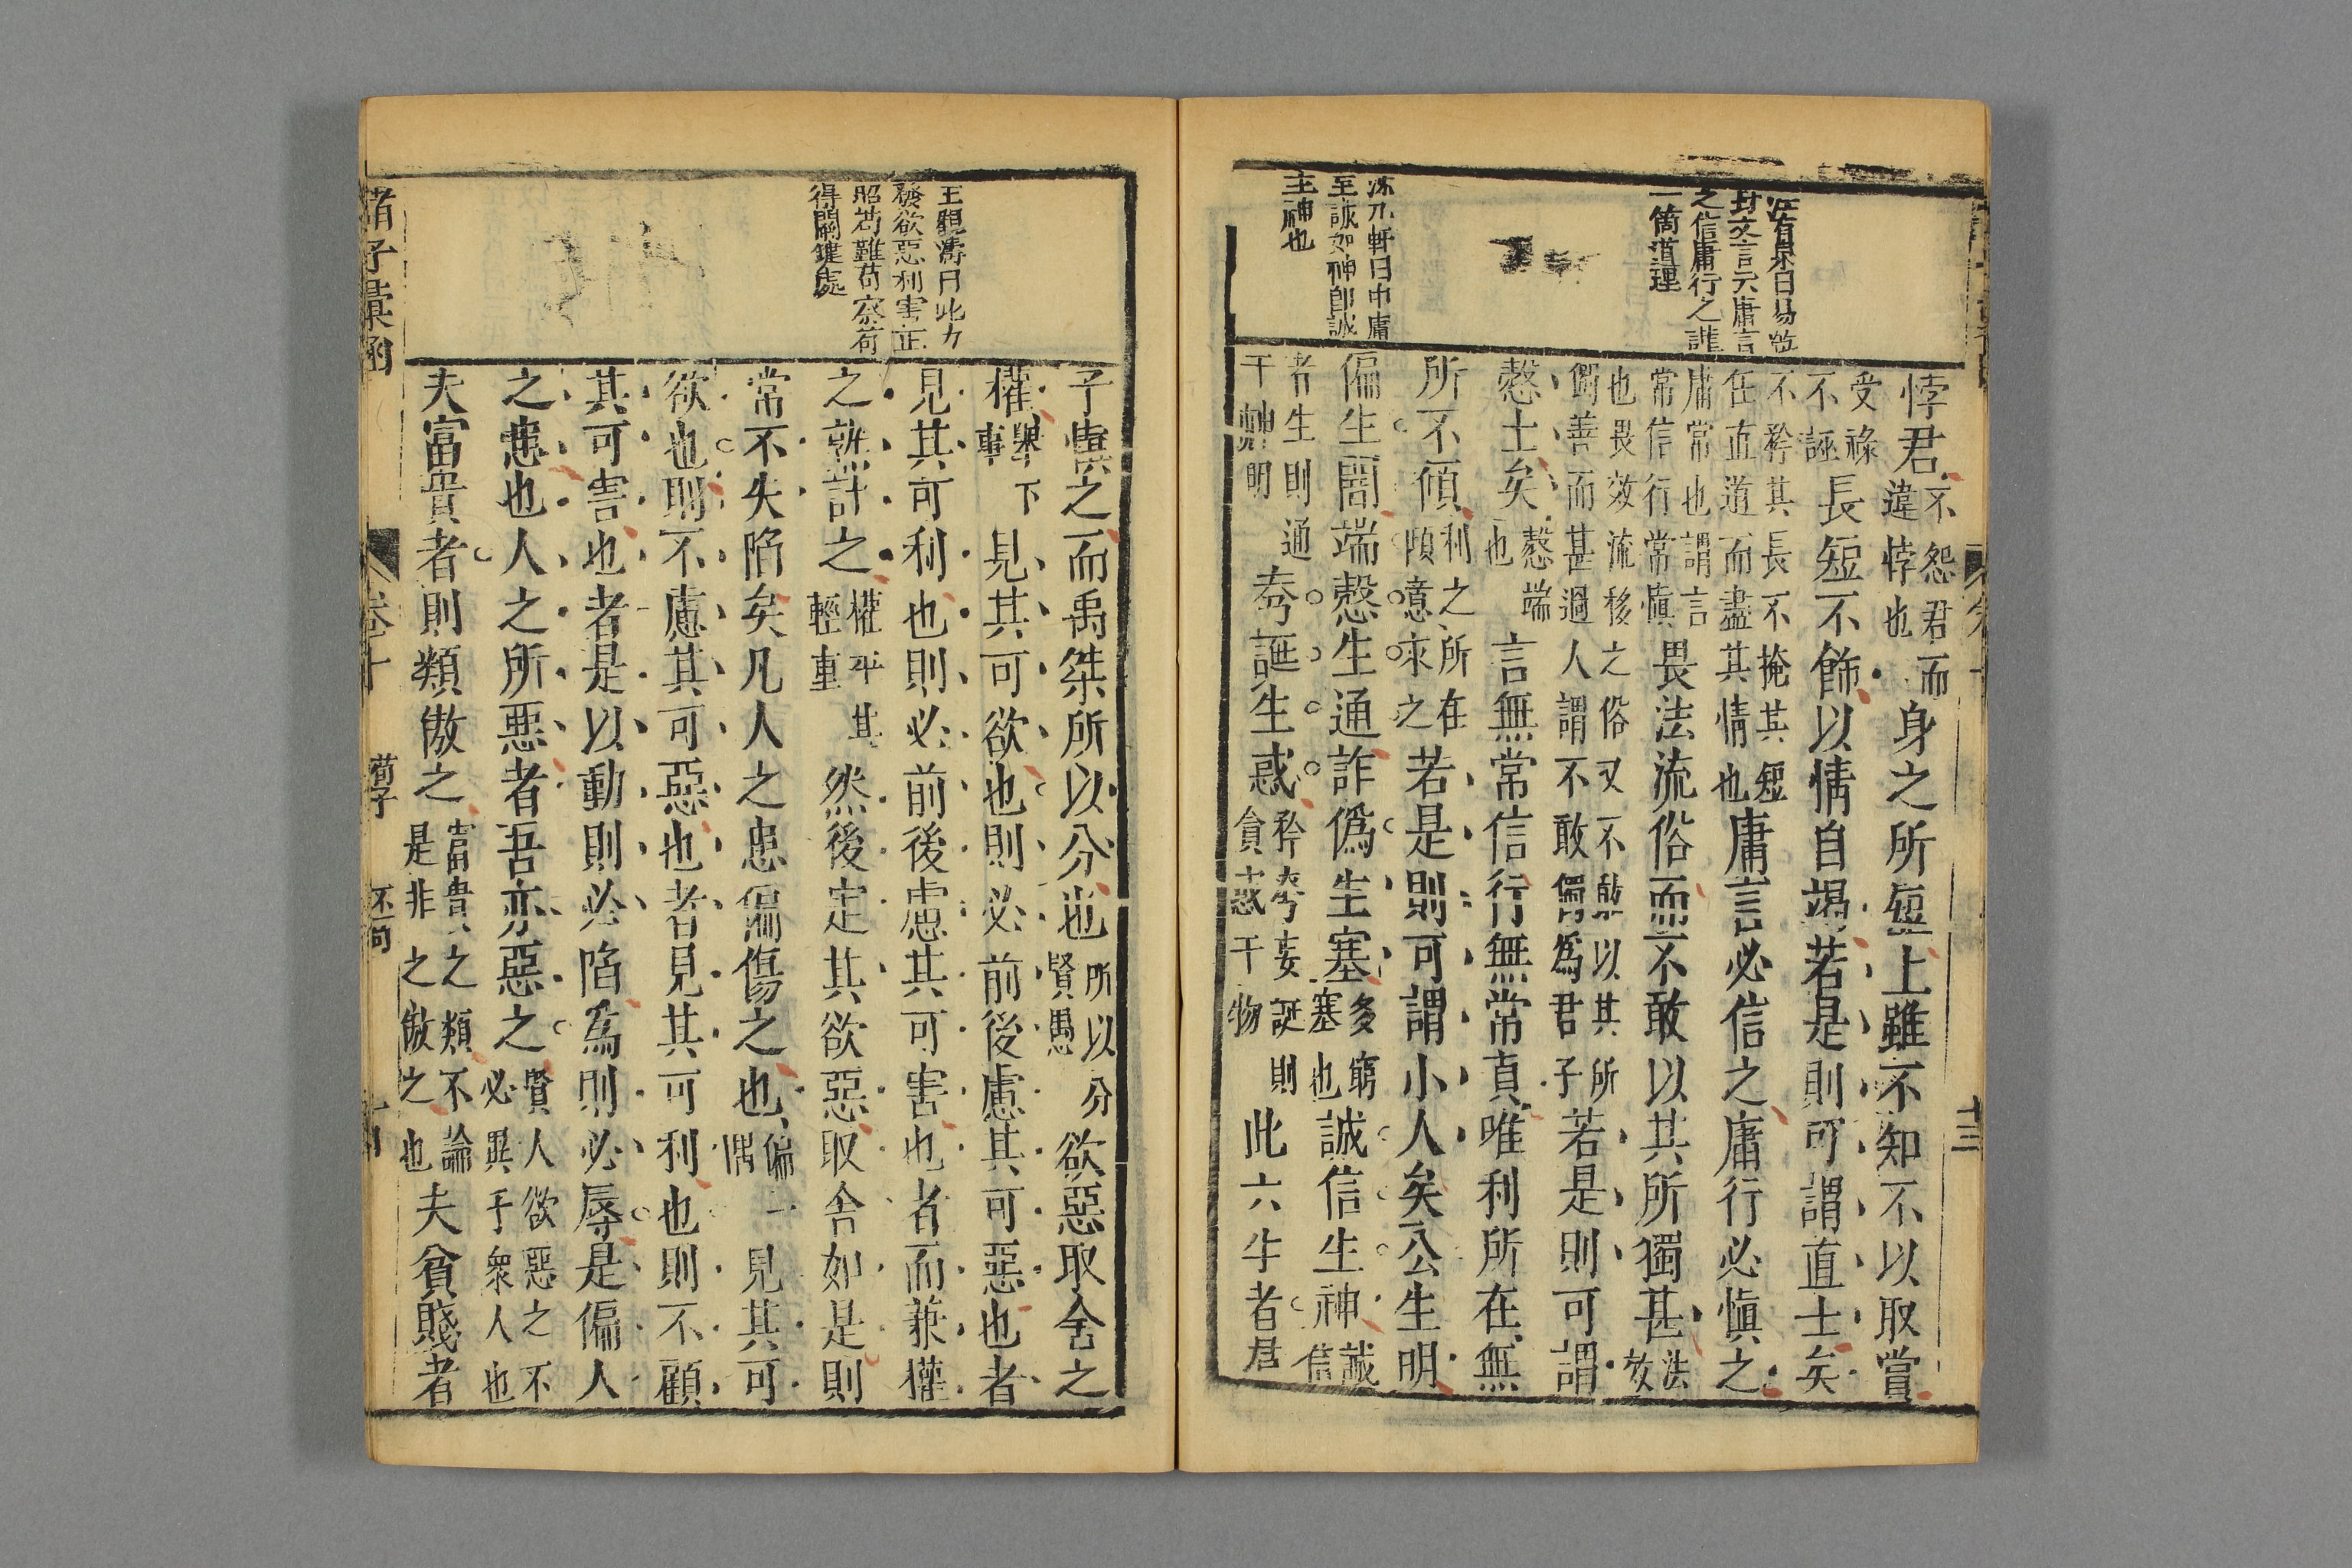 封文言云庸言
之信庸行之謹
一箇道理
悖君不怨君而違悖也身之所短上雖不知不以取賞
受祿不誣長短不飾以情自竭若是則可謂直士矣
不矜其長不掩其短任直道而盡其情也庸言必信之庸行必慎之
庸常也謂言常信行常慎畏法流俗而不敢以其所獨甚法效
也畏效流移之俗又不敢以其所獨善而甚過人謂不敢獨爲君子若是則可謂
慤士矣慤端也言無常信行無常貞唯利所在無
所不傾利之所在傾意求之若是則可謂小人矣公生明
至誠如神卽誠
主神也
偏生闇端慤生通詐僞生塞多窮塞也誠信生神誠信
者生則通于神明夸誕生惑矜夸妄誕則貪惑于物此六生者君
子慎之而禹桀所以分也所以分賢愚欲惡取舍之
權舉下事見其可欲也則必前後慮其可惡也者
王觀濤曰此力
發欲惡利害正
昭苟難苟察荷
得關鍵處
見其可利也則必前後慮其可害也者而兼權
之孰計之權平其輕重然後定其欲惡取舍如是則
常不失陷矣凡人之患偏傷之也偏一隅見其可
欲也則不慮其可惡也者見其可利也則不顧
其可害也者是以動則必陷爲則必辱是偏人
之患也人之所惡者吾亦惡之賢人欲惡之不必異于衆人也
夫富貴者則類傲之富貴之類不論是非之傲之也夫貧賤者
諸子彙函
卷十
荀子
不苟